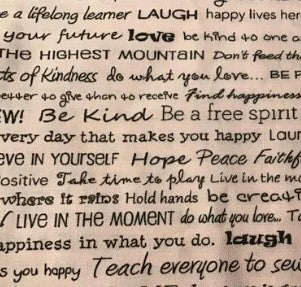 e a lifelong learner LAUGH happy lives her
your future love be kind to one a
THE HIGHEST MOUNTAIN Don't feed th
ts of Kindness do what you love... BE F
better to give than to receive Find happiness
W! Be Kind Be a free spirit
very day that makes you happy LAU
EVE IN YOURSELF Hope Peace Faithf
ositive Take time to play Live in the m
where it rains Hold hands be creati
LIVE IN THE MOMENT do what you love... T
appiness in what you do. laugh
s you happy Teach everyone to sew